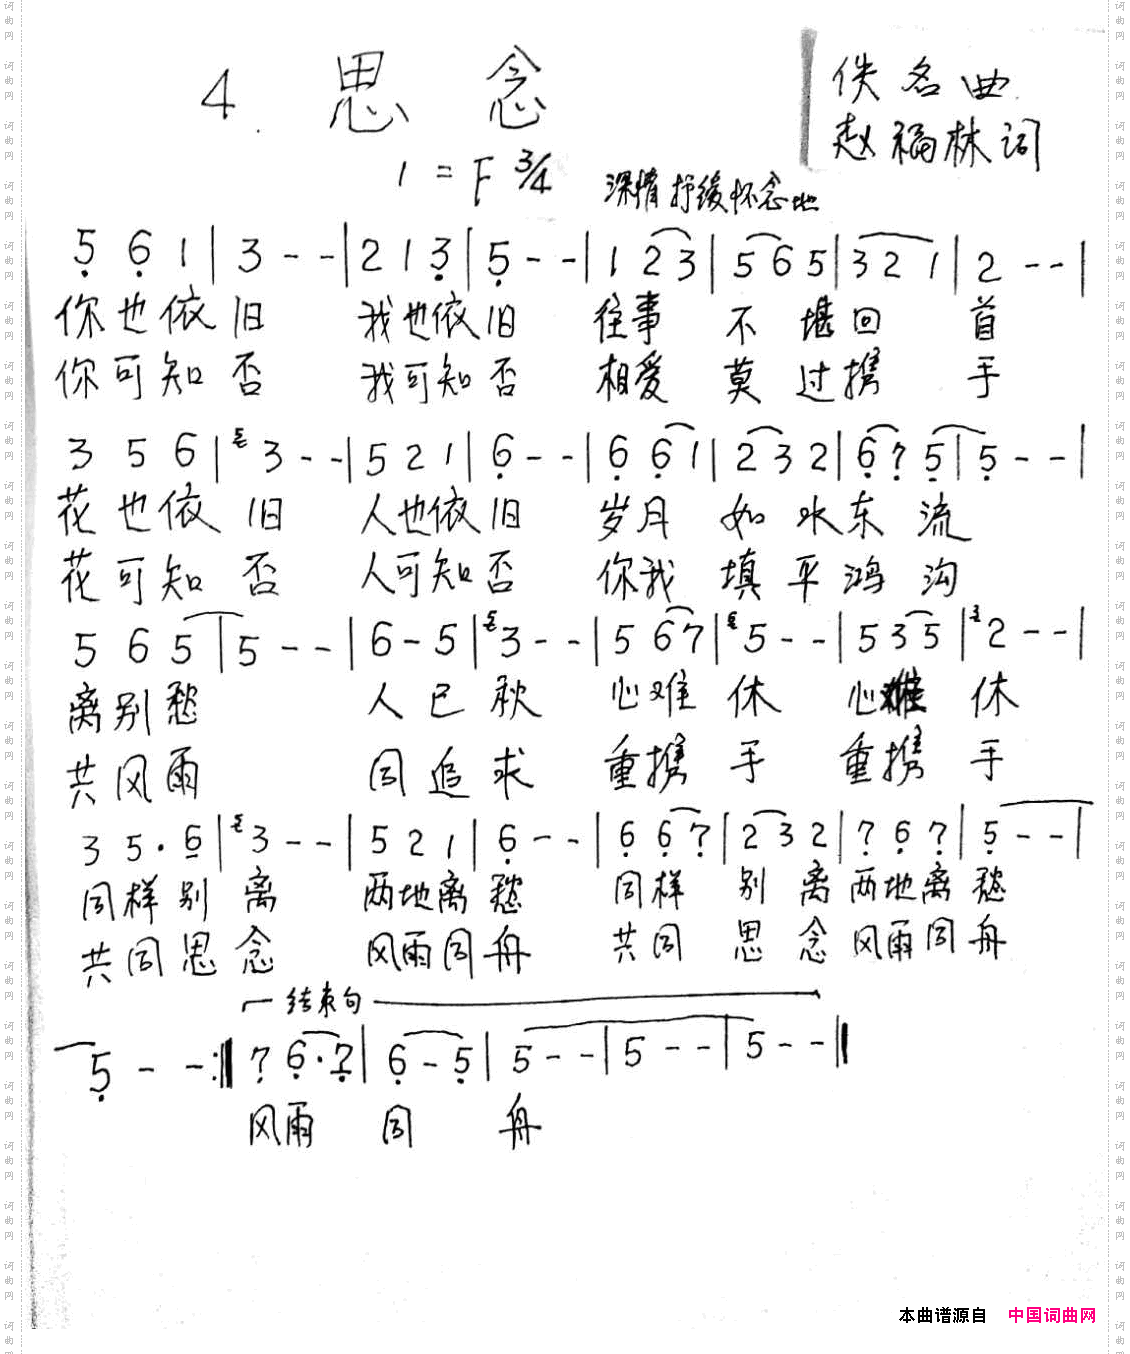 4. 思念
佚名曲
赵福林词
1=F 3/4 深情 抒缓怀念地
5 6 1 | 3 - - | 2 1 3 | 5 - - | 1 2 3 | 5 6 5 | 3 2 1 | 2 - - |
你也依旧 我也依旧 往事不堪回首
你可知否 我可知否 相爱莫过携手
3 5 6 | 3 - - | 5 2 1 | 6 - - | 6 6 1 | 2 3 2 | 6 7 5 | 5 - - |
花也依旧 人也依旧 岁月如水东流
花可知否 人可知否 你我填平鸿沟
5 6 5 | 5 - - | 6 - 5 | 3 - - | 5 6 7 | 5 - - | 5 3 5 | 2 - - |
离别愁 人已秋 心难休 心难休
共风雨 同追求 重携手 重携手
3 5 · 6 | 3 - - | 5 2 1 | 6 - - | 6 6 7 | 2 3 2 | 7 6 7 | 5 - - |
同样别离 两地离愁 同样别离 两地离愁
共同思念 风雨同舟 共同思念 风雨同舟
结束句
5 - - :‖ 7 6 · 7 | 6 - 5 | 5 - - | 5 - - | 5 - - ‖
风雨同舟
本曲谱源自 中国词曲网